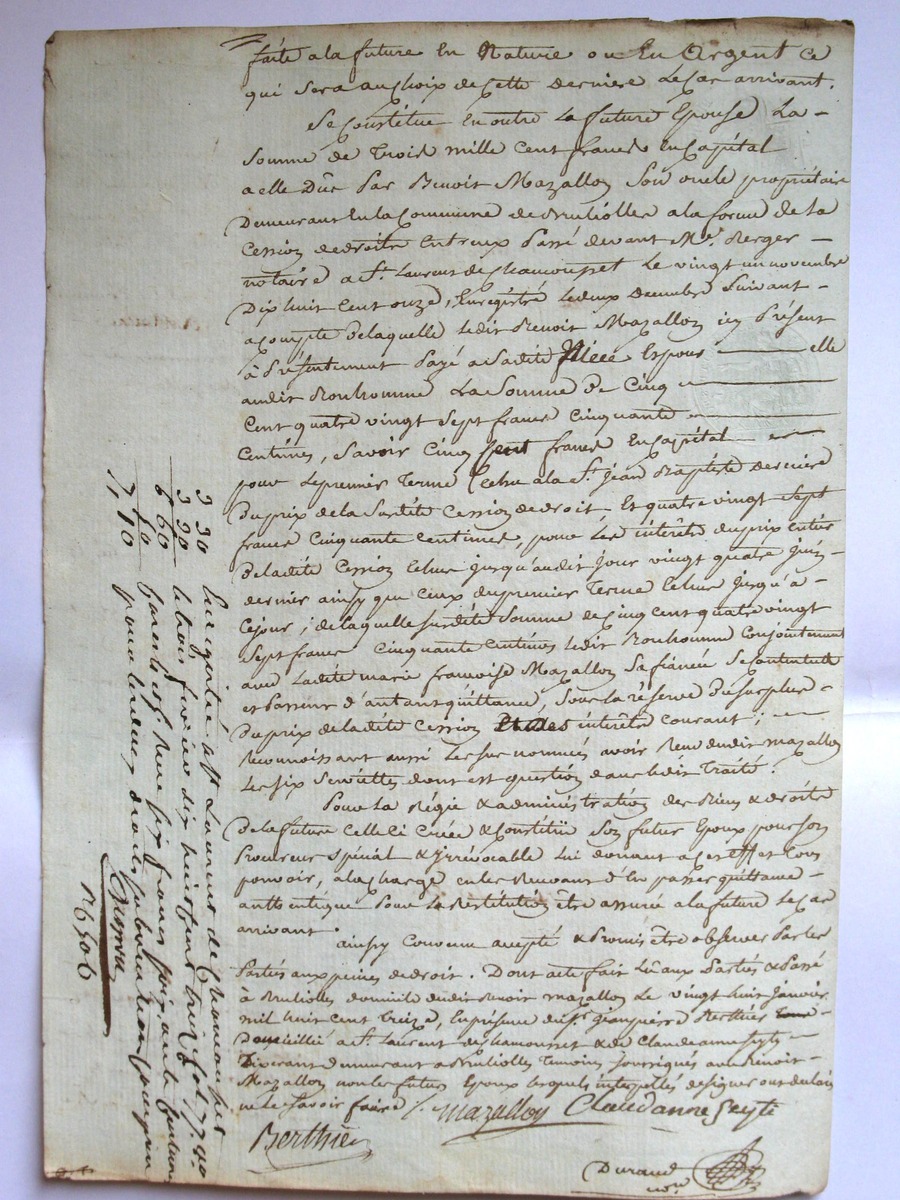 faite a la future En Nature ou En Argent ce
qui Sera au choix de Cette derniere Le Cas arrivant.
Se Constitue En outre La future Epouse La
Somme de Trois mille Cent francs En Capital
a elle Dûe Par Benoit Mazallon Son oncle propriétaire
Demeurant En la Commune de Brulliolles a la forme de La
Cession de droits Entr'eux Passé devant Me. Berger
notaire a St. Laurent de Chamousset Le vingt un novembre
Dix huit Cent onze, Enregistré Le deux Decembre Suivant
a compte De laquelle Ledit Benoit Mazallon icy Présent
à Présentement Payé a Sadite Niece Et pour elle
audit Bonhomme La Somme De Cinq
Cent quatre vingt Sept francs Cinquante
Centimes, Savoir Cinq Cent francs En Capital
pour Le premier Terme Echu a la St. Jean Baptiste derniere
Du prix de la Susdite Cession de droit, Et quatre vingt Sept
francs Cinquante Centimes, pour Les intérêts du prix Entier
De ladite Cession Echus jusqu'audit jour vingt quatre juin
dernier ainsy que Ceux du premier Terme Echus jusqu'à
Ce jour; de laquelle Susdite Somme de Cinq Cent quatre vingt
Sept francs Cinquante Centimes Ledit Bonhomme Conjointement
avec Ladite marie françoise Mazallon Sa fiancée Se Contentent
et Passent d'autant quittance, Sous La réserve Du Surplus
Du prix de ladite Cession Et des intérêts Courant;
Reconnoissant aussi Les Sus nommés avoir Reçu dudit mazallon
Les Six Serviettes dont est question dans Ledit Traité.
Pour La Régie & administration des Biens & droits
De la future Celle Ci Créée & Constitue Son futur Epoux pour Son
Procureur Spécial & Irrévocable Lui donnant a Cet Effet Tous
pouvoir, a la Charge En les Recevant d'En passer quittance
authentique Pour La Restitution Être assurée a la future Le Cas
arrivant
ainsy Convenu accepté & Promis être observer Par Les
Parties aux peines de droit. Dont acte fait Lû aux Parties & Passé
à Brulliolles domicile dudit Benoit mazallon Le vingt huit Janvier
mil huit Cent Treize, En présence de Sr. jean pierre Berthier
Domicilié a St. Laurent de Chamousset & de Claude anne Seyte
Demeurant a Brulliolles Temoins Soussignés avec Benoit
Mazallon non les futurs Epoux Lesquels interpellés de signer ont déclaré
ne Le Savoir faire /.
Mazallon Claudanne Seyte
Berthier
Durand
nore
3 30 Enregistré a St Laurent de Chamousset
3 30 le trois fevrier dix huit cent treize
6 60 francs Soixante
60
7, 10 pour les deux droits